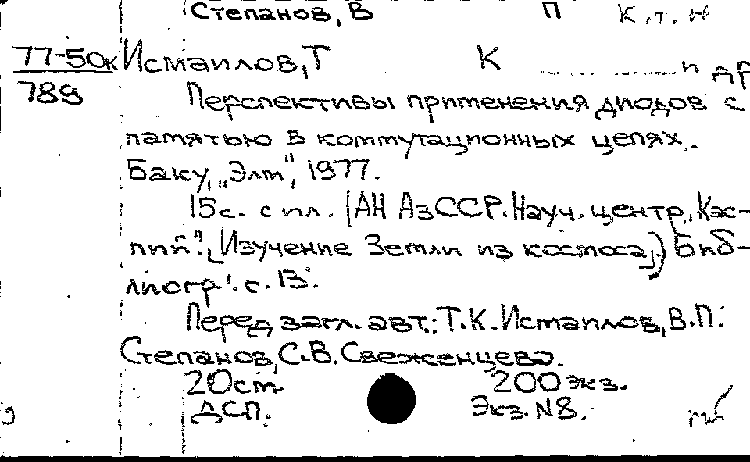 Степанов, В П К.т.н
77-50к Исмаилов, Т К п др
789
Перспективы применения диодов с
памятью в коммутационных цепях.
Баку, „Элм", 1977.
15с. с ил. (АН АзССР. Науч. центр „Кас-
пий". [Изучение Земли из космоса]) Биб-
лиогр.: с. 13.
Перед загл. авт.: Т.К. Исмаилов, В.П.
Степанов, С.В. Свеженцева.
20см. 200 экз.
ДСП. Экз. N8.